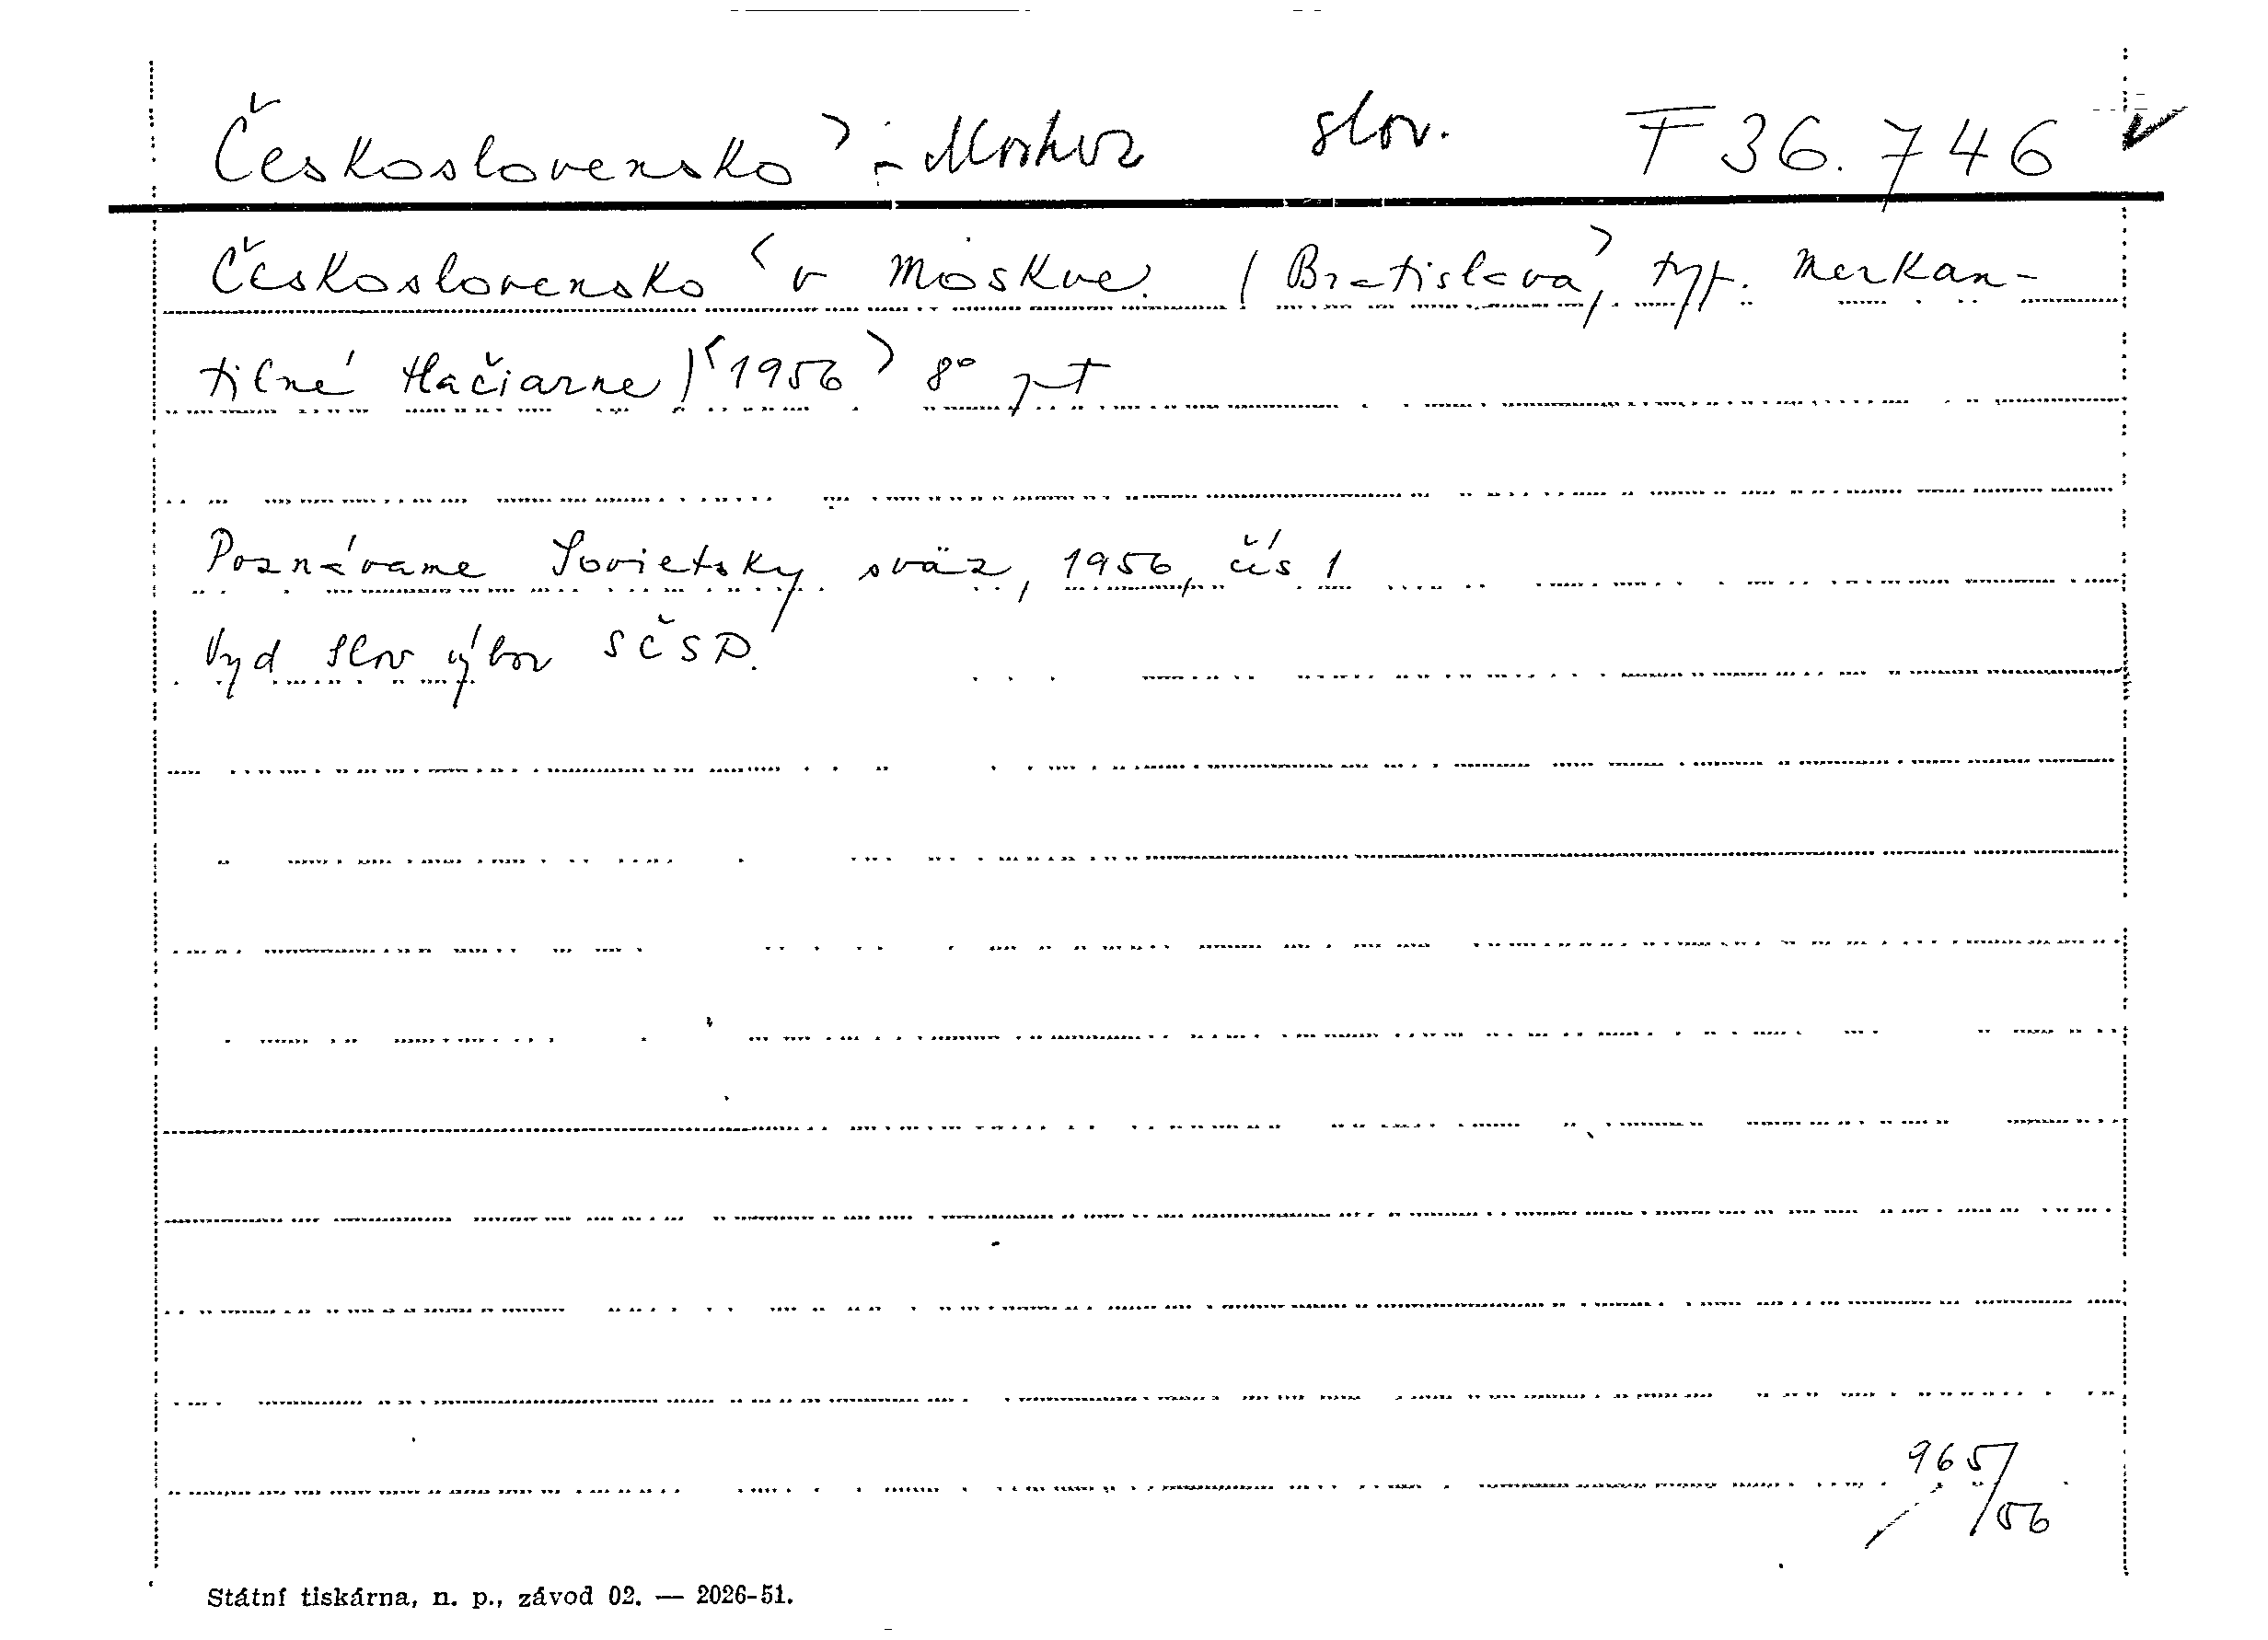 Československo > - Moskva slov. F 36.746
Československo < v Moskve. (Bratislava>, typ. Merkan-
tilné tlačiarne) <1956> 8°
Poznávame Sovietsky sväz, 1956, čís 1
Vyd Slov výbor SČSP.
965/56
Státní tiskárna, n. p., závod 02. — 2026-51.